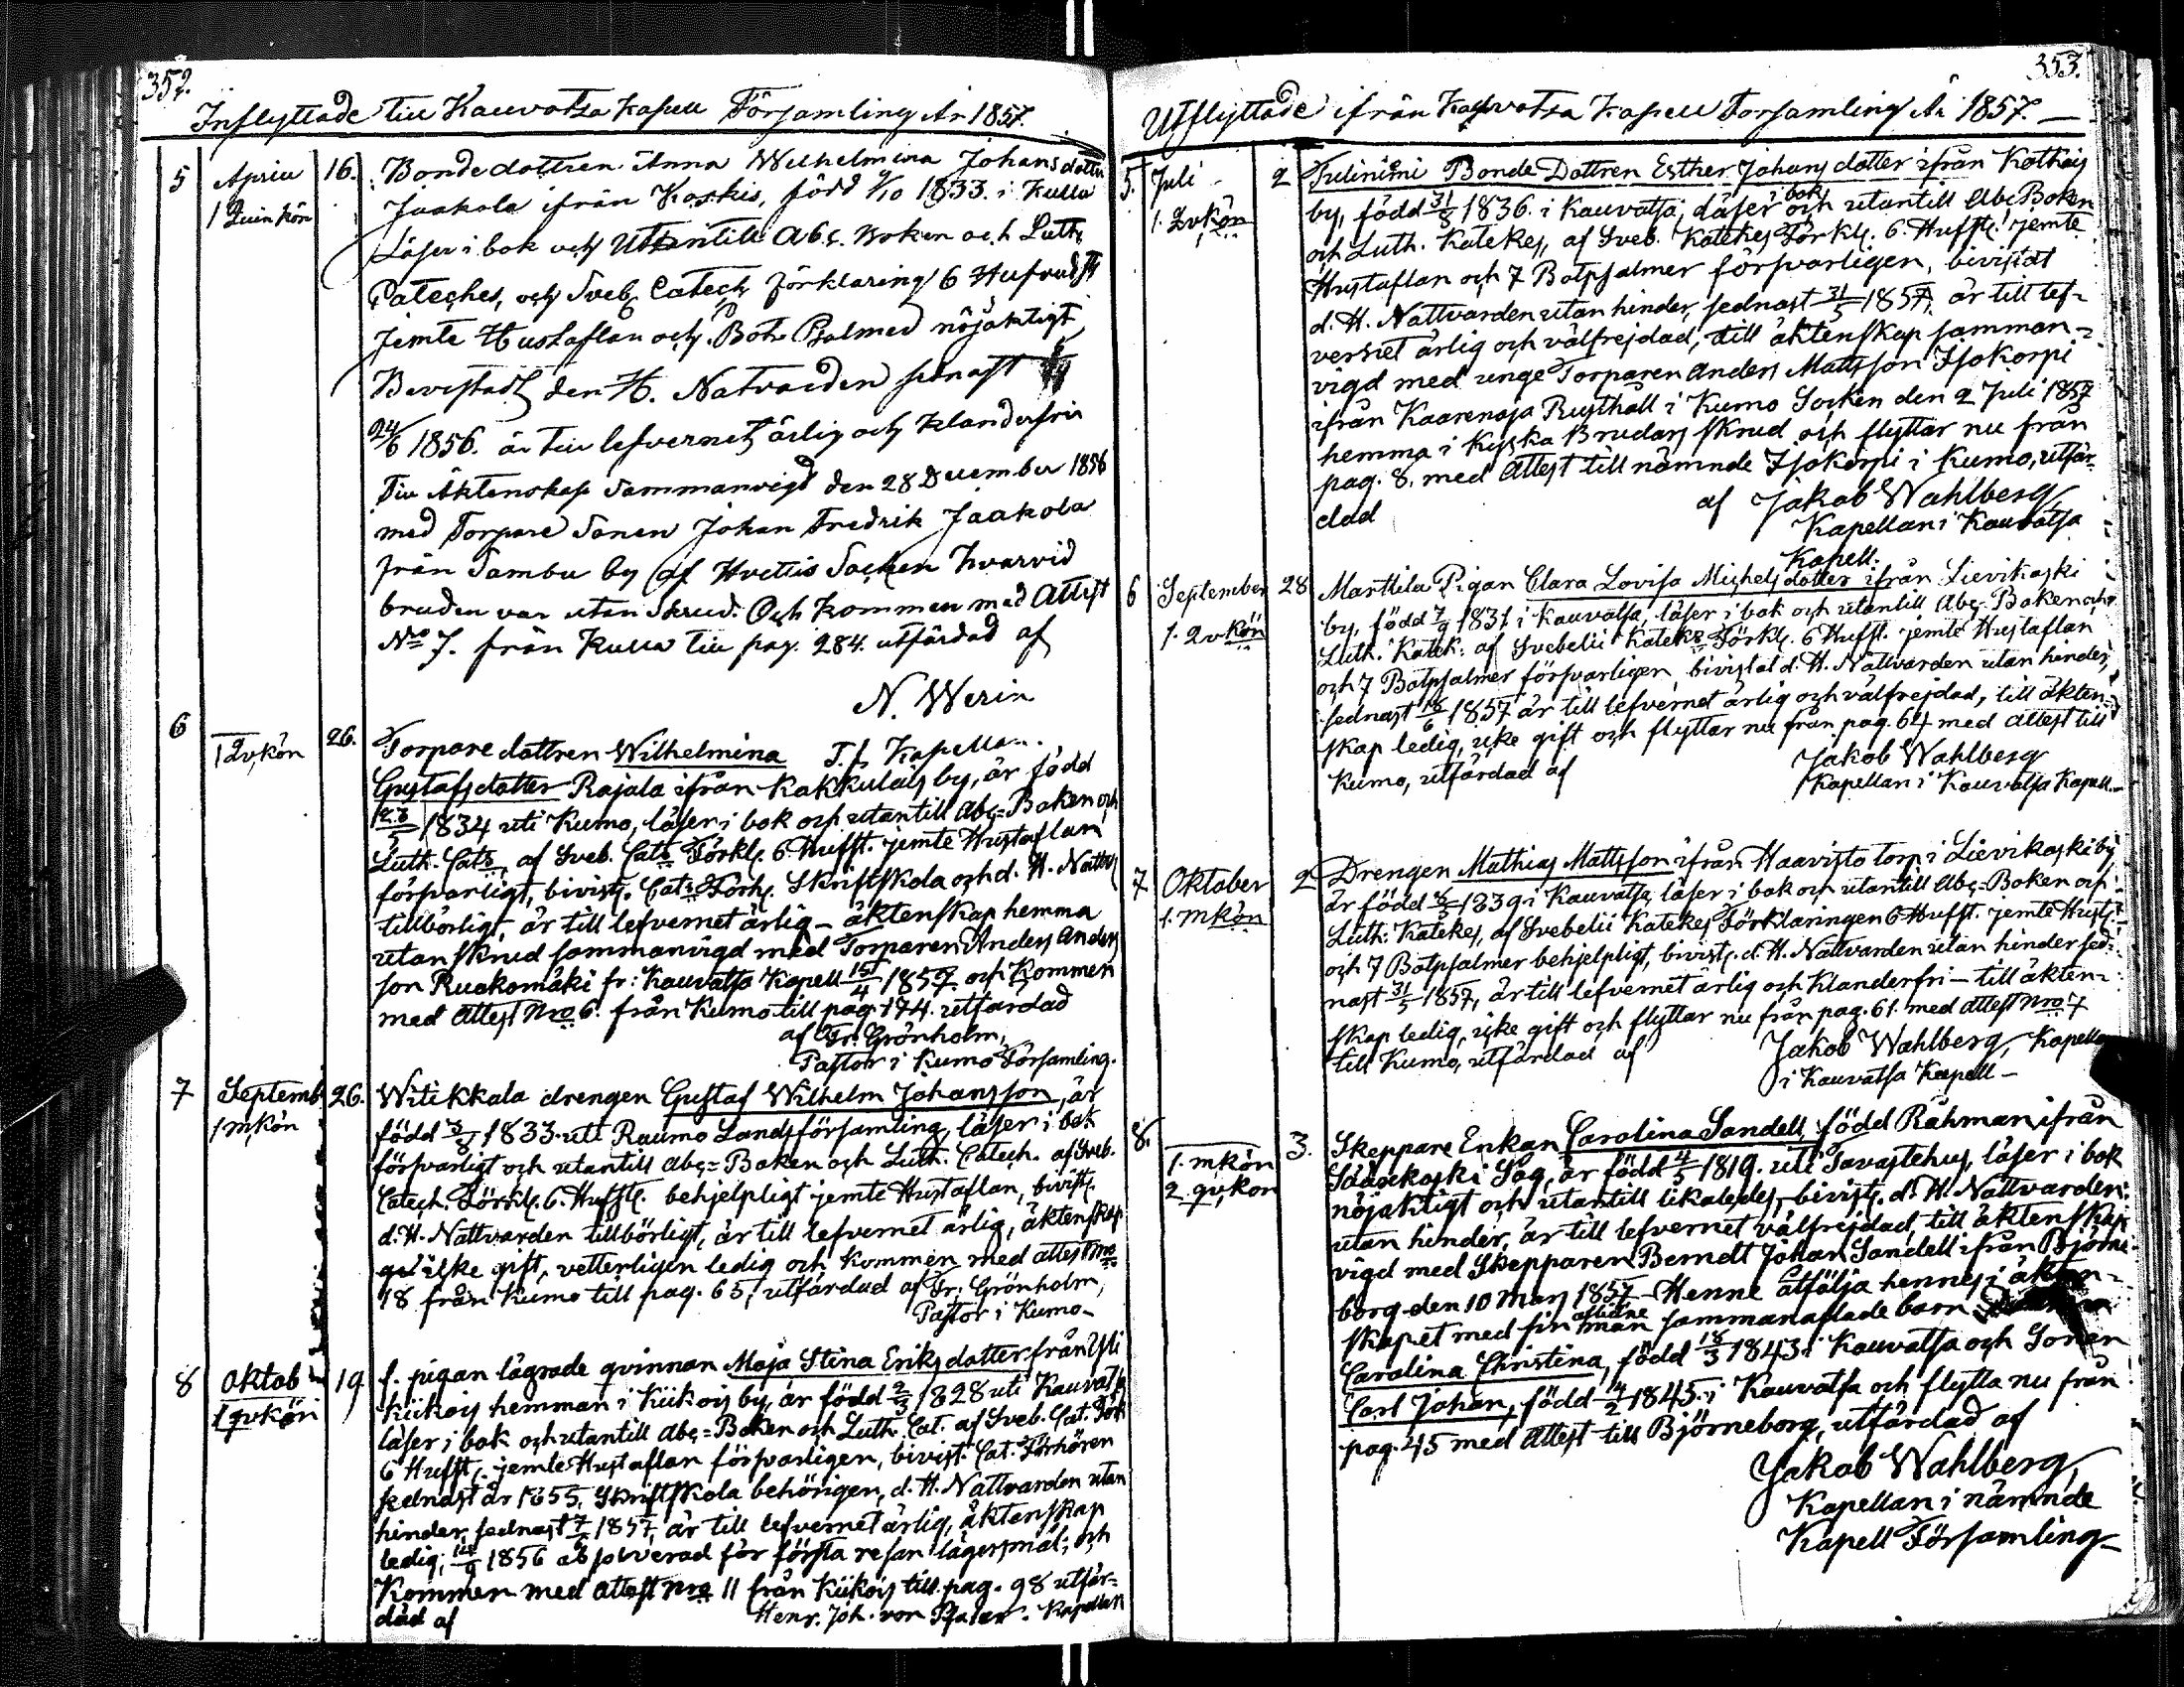 352.
Inflyttade till Kauvatsa Kapell Församling År 1857.
5 April 16. Bondedottren Anna Wilhelmina Johansdotter
1 Quinkön Jaakola ifrån Koskis, född 9/10 1833. i Kulla
Läser i bok och Utantill Abc. Boken och Luth
Cateches, och Sveb Catech förklaring 6 Hufvudst
jemte Hustaflan och Bot Psalmer nöjaktigt
Bevistadt den H. Natvarden sednast
24/6 1856. är till lefvernet ärlig och klanderfri
Till Äktenskap Sammanvigd den 28 December 1856
med Torpare Sonen Johan Fredrik Jaakola
från Sambu by af Hvittis Socken hvarvid
bruden var utan Skrud. Och kommen med Attest
No 7. från Kulla till pag. 284. utfärdad af
N. Werin
T.f. Kapellan.
6 1 Qv,kön 26. Torpare dottren Wilhelmina
Gustafsdotter Rajala ifrån Kakkulais by, är född
1834 uti Kumo, läser i bok och utantill Abc=Boken och
Luth. Cats, af Sveb. Cats Förkl. 6 Hufft. jemte Hustaflan
försvarligt, bivist. Cat: Förh. Skriftskola och d. H. Nattv
tillbörligt, är till lefvernet ärlig – äktenskap hemma
utan skrud sammanvigd med Torparen Anders Anders
son Ruokomäki fr: Kauvatsa Kapell 15/4 1857 och Kommen
med Attest Nro 6. från Kumo till pag. 174. utfärdad
af Fr. Grönholm,
Pastor i Kumo Församling.
7 Septemb 26. Witikkala drengen Gustaf Wilhelm Johansson, är
1 mkön född 1833. uti Raumo Landsförsamling, läser i bok
försvarligt och utantill Abc=Boken och Luth. Catech. af Sveb.
Catech. Förkl. 6. Hufft. behjelpligt jemte Hustaflan, bivist.
d. H. Nattvarden tillbörligt, är till lefvernet ärlig, äktenskap
icke gift, vetterligen ledig och Kommen med attest nro
18 från Kumo till pag. 65, utfärdad af Fr: Grönholm,
Pastor i Kumo –
8 Oktob 19 f. pigan lägrade qvinnan Maja Stina Eriksdotter från
1 qvkön Kiikois hemman i Kiikois by, är född 2/3 1828 uti Kauvatsa
läser i bok och utantill Abc=Boken och Luth. Cat. af Sveb. Cat. Förk
6 Hufft. jemte Hustaflan försvarligen, bivist. Cat. Förhören
sednast år 1855, Skriftskola behörigen, d. H. Nattvarden utan
hinder sednast 1857 är till lefvernet ärlig, äktenskap
ledig; 1856 absolverad för första resan lägersmål; och
Kommen med attest nro 11 från Kiikois till pag. 98 utfär=
dad af Henr. Joh. von Pfaler. Kapellan
353.
Utflyttade ifrån Kauvatsa Kapell Församling År 1857. —
5. Juli 2 Tulinimi Bonde Dottren Esther Johans dotter ifrån
1. Qvkön by, född 31/8 1836. i Kauvatsa, läser i bok och utantill Abc Boken
och Luth. Katekes, af Sveb. Katekes Förkl. 6. Hufft. jemte
Hustaflan och 7 Botpsalmer försvarligen, bivistat
d. H. Nattvarden utan hinder, sednast 31/5 1857, är till lef=
vernet ärlig och välfrejdad, till äktenskap samman=
vigd med unge Torparen Anders Mattsson Isokorpi
ifrån Kaarenoja Rusthåll i Kumo Socken den 2 Juli 1857
hemma i Kyrka Brudars skrud och flyttar nu från
pag. 8. med Attest till nämnde Isokorpi i Kumo, utfär=
dad af Jakob Wahlberg
Kapellan i Kauvatsa
Kapell.
6 September 28 Marttila Pigan Clara Lovisa Michelsdotter ifrån Lievikoski
1. Qvkön by, född 1831 i Kauvatsa, läser i bok och utantill Abc=Boken och
Luth. Katek: af Svebelii Katekes Förkl. 6 Hufft. jemte Hustaflan
och 7 Botpsalmer försvarligen, bivistat d. H. Nattvarden utan hinder,
sednast 1857 är till lefvernet ärlig och välfrejdad, till äkten=
skap ledig, icke gift och flyttar nu från pag. 64 med attest till
Kumo, utfärdad af Jakob Wahlberg
Kapellan i Kauvatsa Kapell.
7. Oktober 2 Drengen Mathias Mattsson ifrån Haavisto torp i Lievikoski by
1. Mkön är född 1839 i Kauvatsa, läser i bok och utantill Abc=Boken och
Luth: Katekes, af Svebelii Katekes Förklaringen 6 Hufft. jemte Hust.
och 7 Botpsalmer behjelpligt, bivist. d. H. Nattvarden utan hinder sed=
nast 31/5 1857, är till lefvernet ärlig och klanderfri – till äkten=
skap ledig, icke gift och flyttar nu från pag. 61. med attest Nro 7
till Kumo, utfärdad af Jakob Wahlberg, Kapellan
i Kauvatsa Kapell –
8. 3. Skeppare Enkan Carolina Sandell, född Råhman ifrån
1. mkön Sääxkoski Såg, är född 1819. uti Tavastehus, läser i bok
2. qvkön nöjaktigt och utantill likaledes, bivist. d. H. Nattvarden
utan hinder, är till lefvernet välfrejdad, till äktenskap
vigd med Skepparen Berndt Johan Sandell ifrån Björne
borg den 10 Mars 1857 – Henne åtfölja hennes i äkten=
skapet med sin aflidne man sammanaflade barn
Carolina Christina, född 18/3 1843 i Kauvatsa och Sonen
Carl Johan, född 4/2 1845. i Kauvatsa och flytta nu från
pag. 45 med Attest till Björneborg, utfärdad af
Jakob Wahlberg,
Kapellan i nämnde
Kapell Församling –